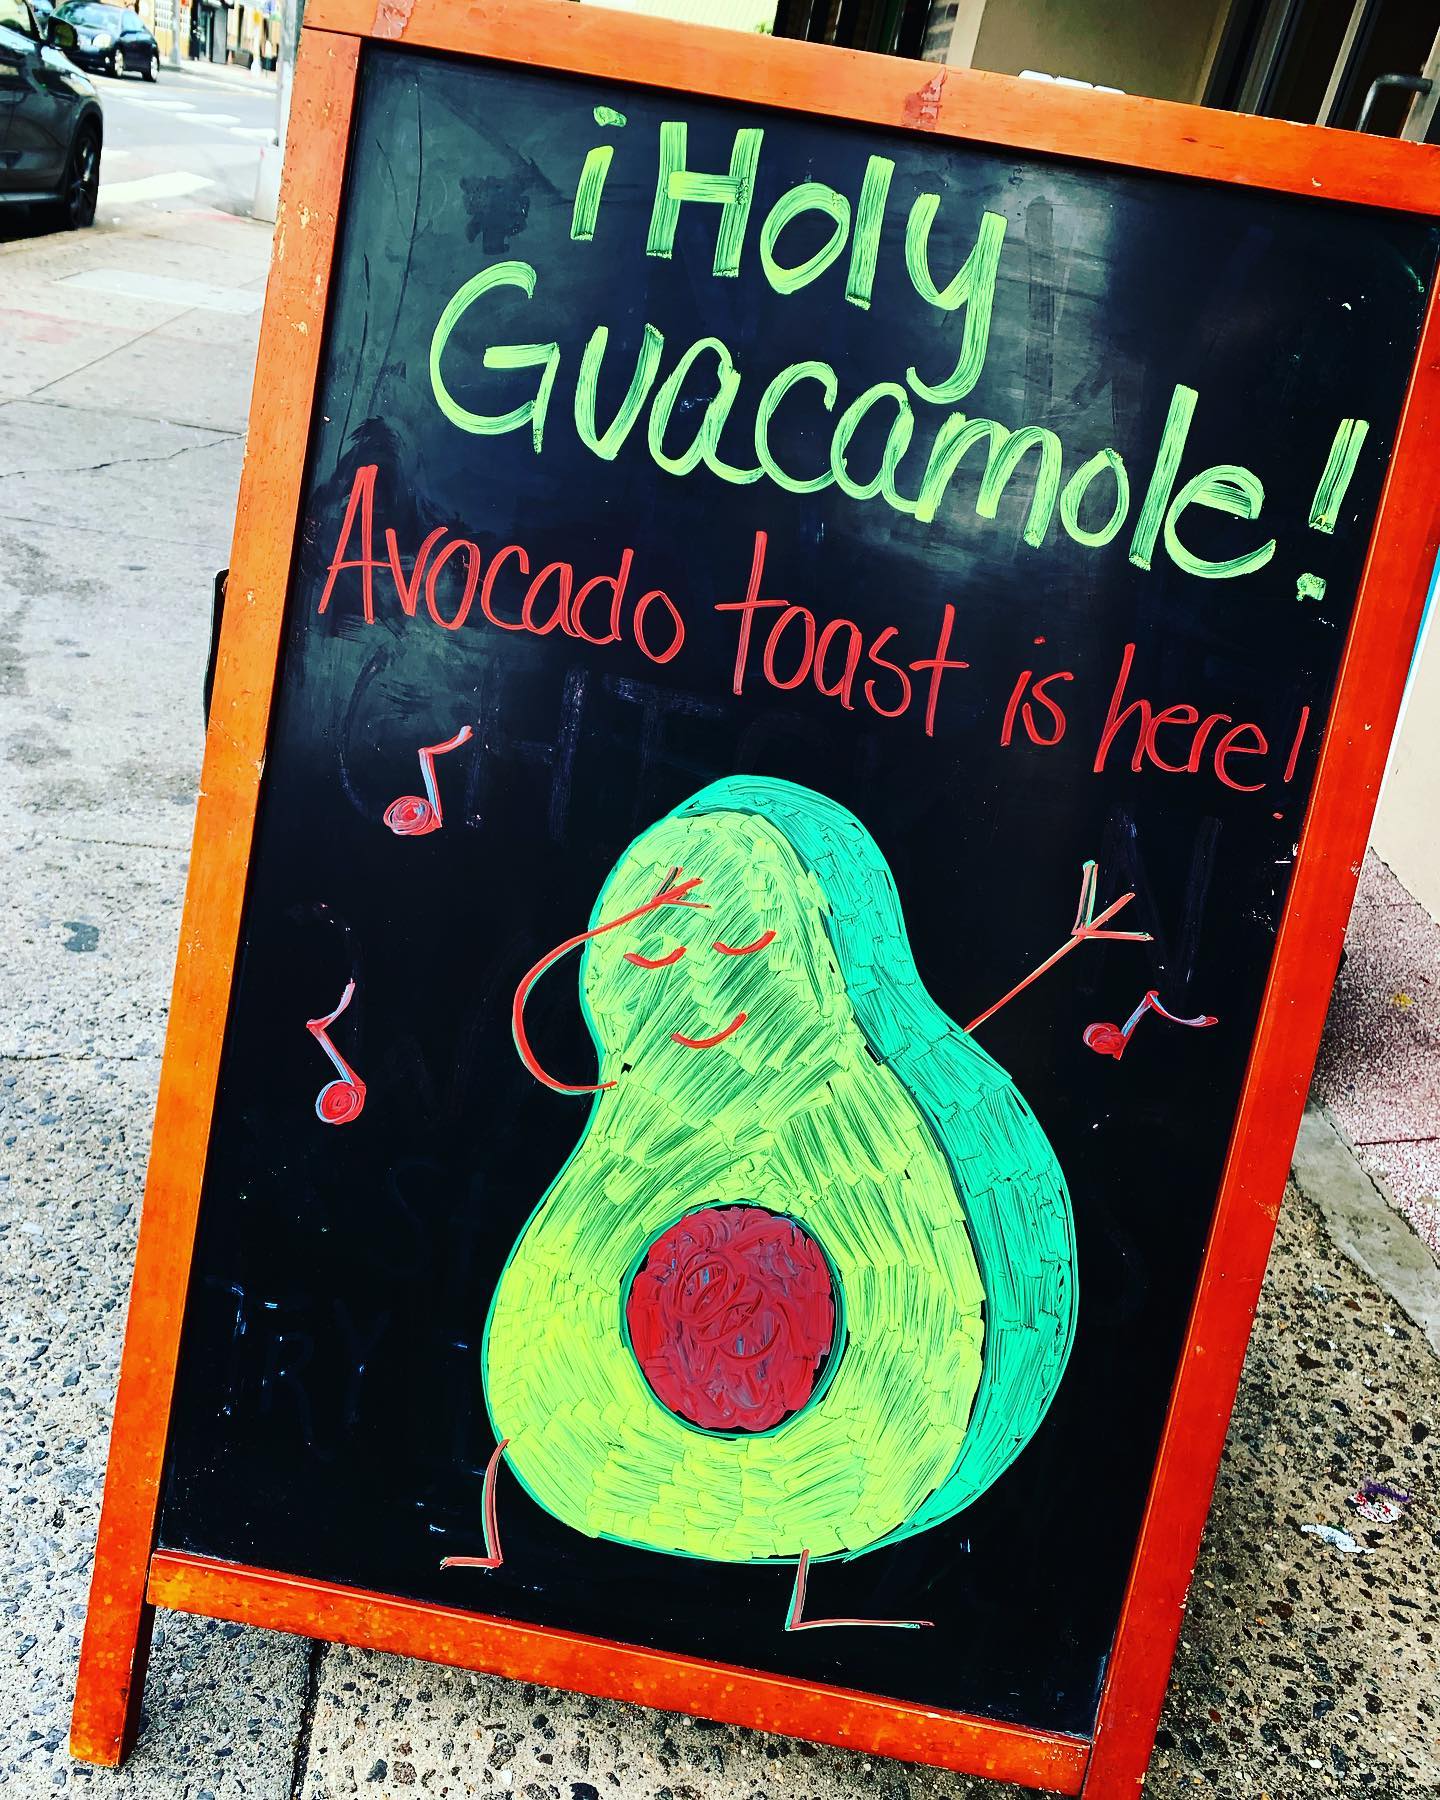 ¡Holy
Guacamole!
Avocado toast is here!